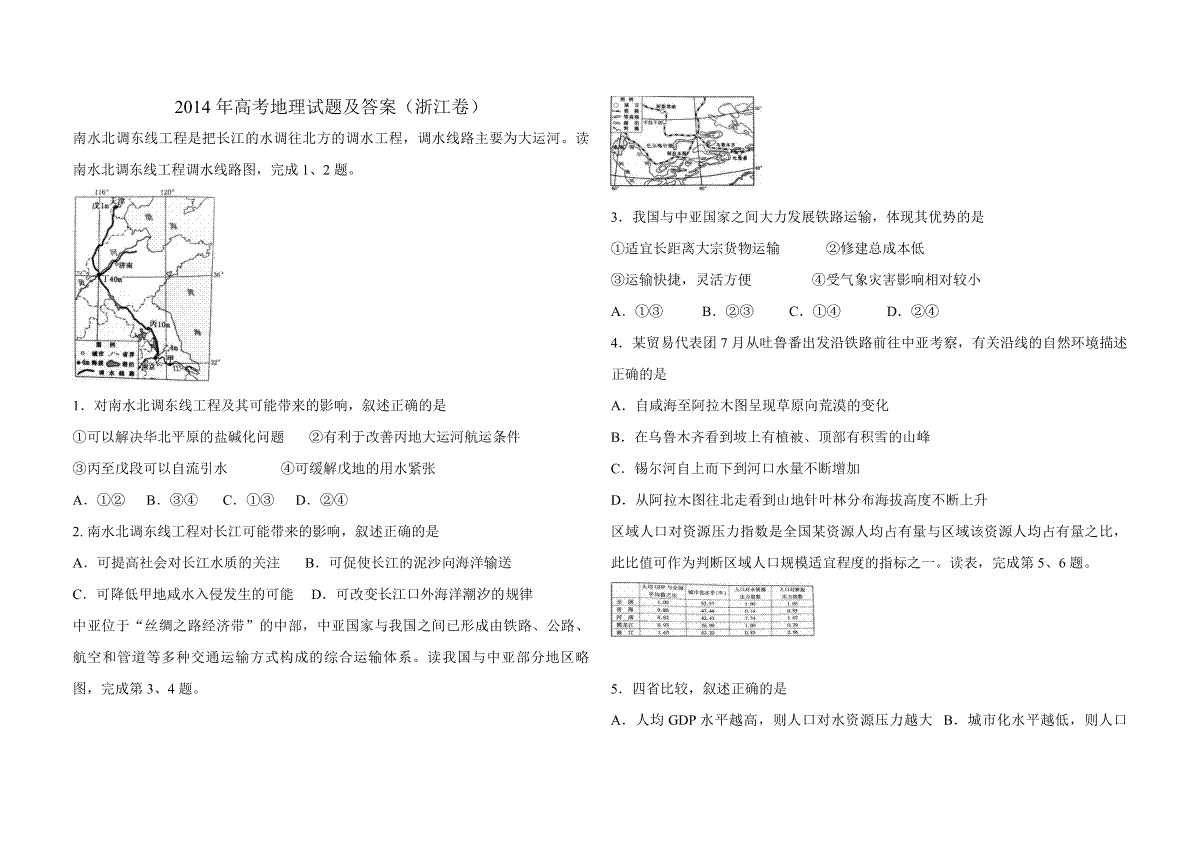 2014 年高考地理试题及答案（浙江卷）
南水北调东线工程是把长江的水调往北方的调水工程，调水线路主要为大运河。读
南水北调东线工程调水线路图，完成 1、2 题。
116° 120°
天津
戊1m
渤
海
济南
丁40m
36°
黄
海
丙10m
图 例
城市 省界
调 水 线 路
甲
32°
1．对南水北调东线工程及其可能带来的影响，叙述正确的是
①可以解决华北平原的盐碱化问题 ②有利于改善丙地大运河航运条件
③丙至戊段可以自流引水 ④可缓解戊地的用水紧张
A．①② B．③④ C．①③ D．②④
2. 南水北调东线工程对长江可能带来的影响，叙述正确的是
A．可提高社会对长江水质的关注 B．可促使长江的泥沙向海洋输送
C．可降低甲地咸水入侵发生的可能 D．可改变长江口外海洋潮汐的规律
中亚位于“丝绸之路经济带”的中部，中亚国家与我国之间已形成由铁路、公路、
航空和管道等多种交通运输方式构成的综合运输体系。读我国与中亚部分地区略
图，完成第 3、4 题。
图 例
城 市
铁 路
湖 泊
3．我国与中亚国家之间大力发展铁路运输，体现其优势的是
①适宜长距离大宗货物运输 ②修建总成本低
③运输快捷，灵活方便 ④受气象灾害影响相对较小
A．①③ B．②③ C．①④ D．②④
4．某贸易代表团 7 月从吐鲁番出发沿铁路前往中亚考察，有关沿线的自然环境描述
正确的是
A．自咸海至阿拉木图呈现草原向荒漠的变化
B．在乌鲁木齐看到坡上有植被、顶部有积雪的山峰
C．锡尔河自上而下到河口水量不断增加
D．从阿拉木图往北走看到山地针叶林分布海拔高度不断上升
区域人口对资源压力指数是全国某资源人均占有量与区域该资源人均占有量之比，
此比值可作为判断区域人口规模适宜程度的指标之一。读表，完成第 5、6 题。
人均 GDP 与全国平均值之比 城市化水平(%) 人口对水资源压力指数 人口对耕地压力指数
全 国 1.00 52.57 1.00 1.00
青 海 0.86 47.44 0.14 0.95
河 南 0.82 42.43 7.74 1.07
黑龙江 0.93 56.90 1.00 0.29
浙 江 1.65 63.20 0.83 2.56
5．四省比较，叙述正确的是
A．人均 GDP 水平越高，则人口对水资源压力越大 B．城市化水平越低，则人口